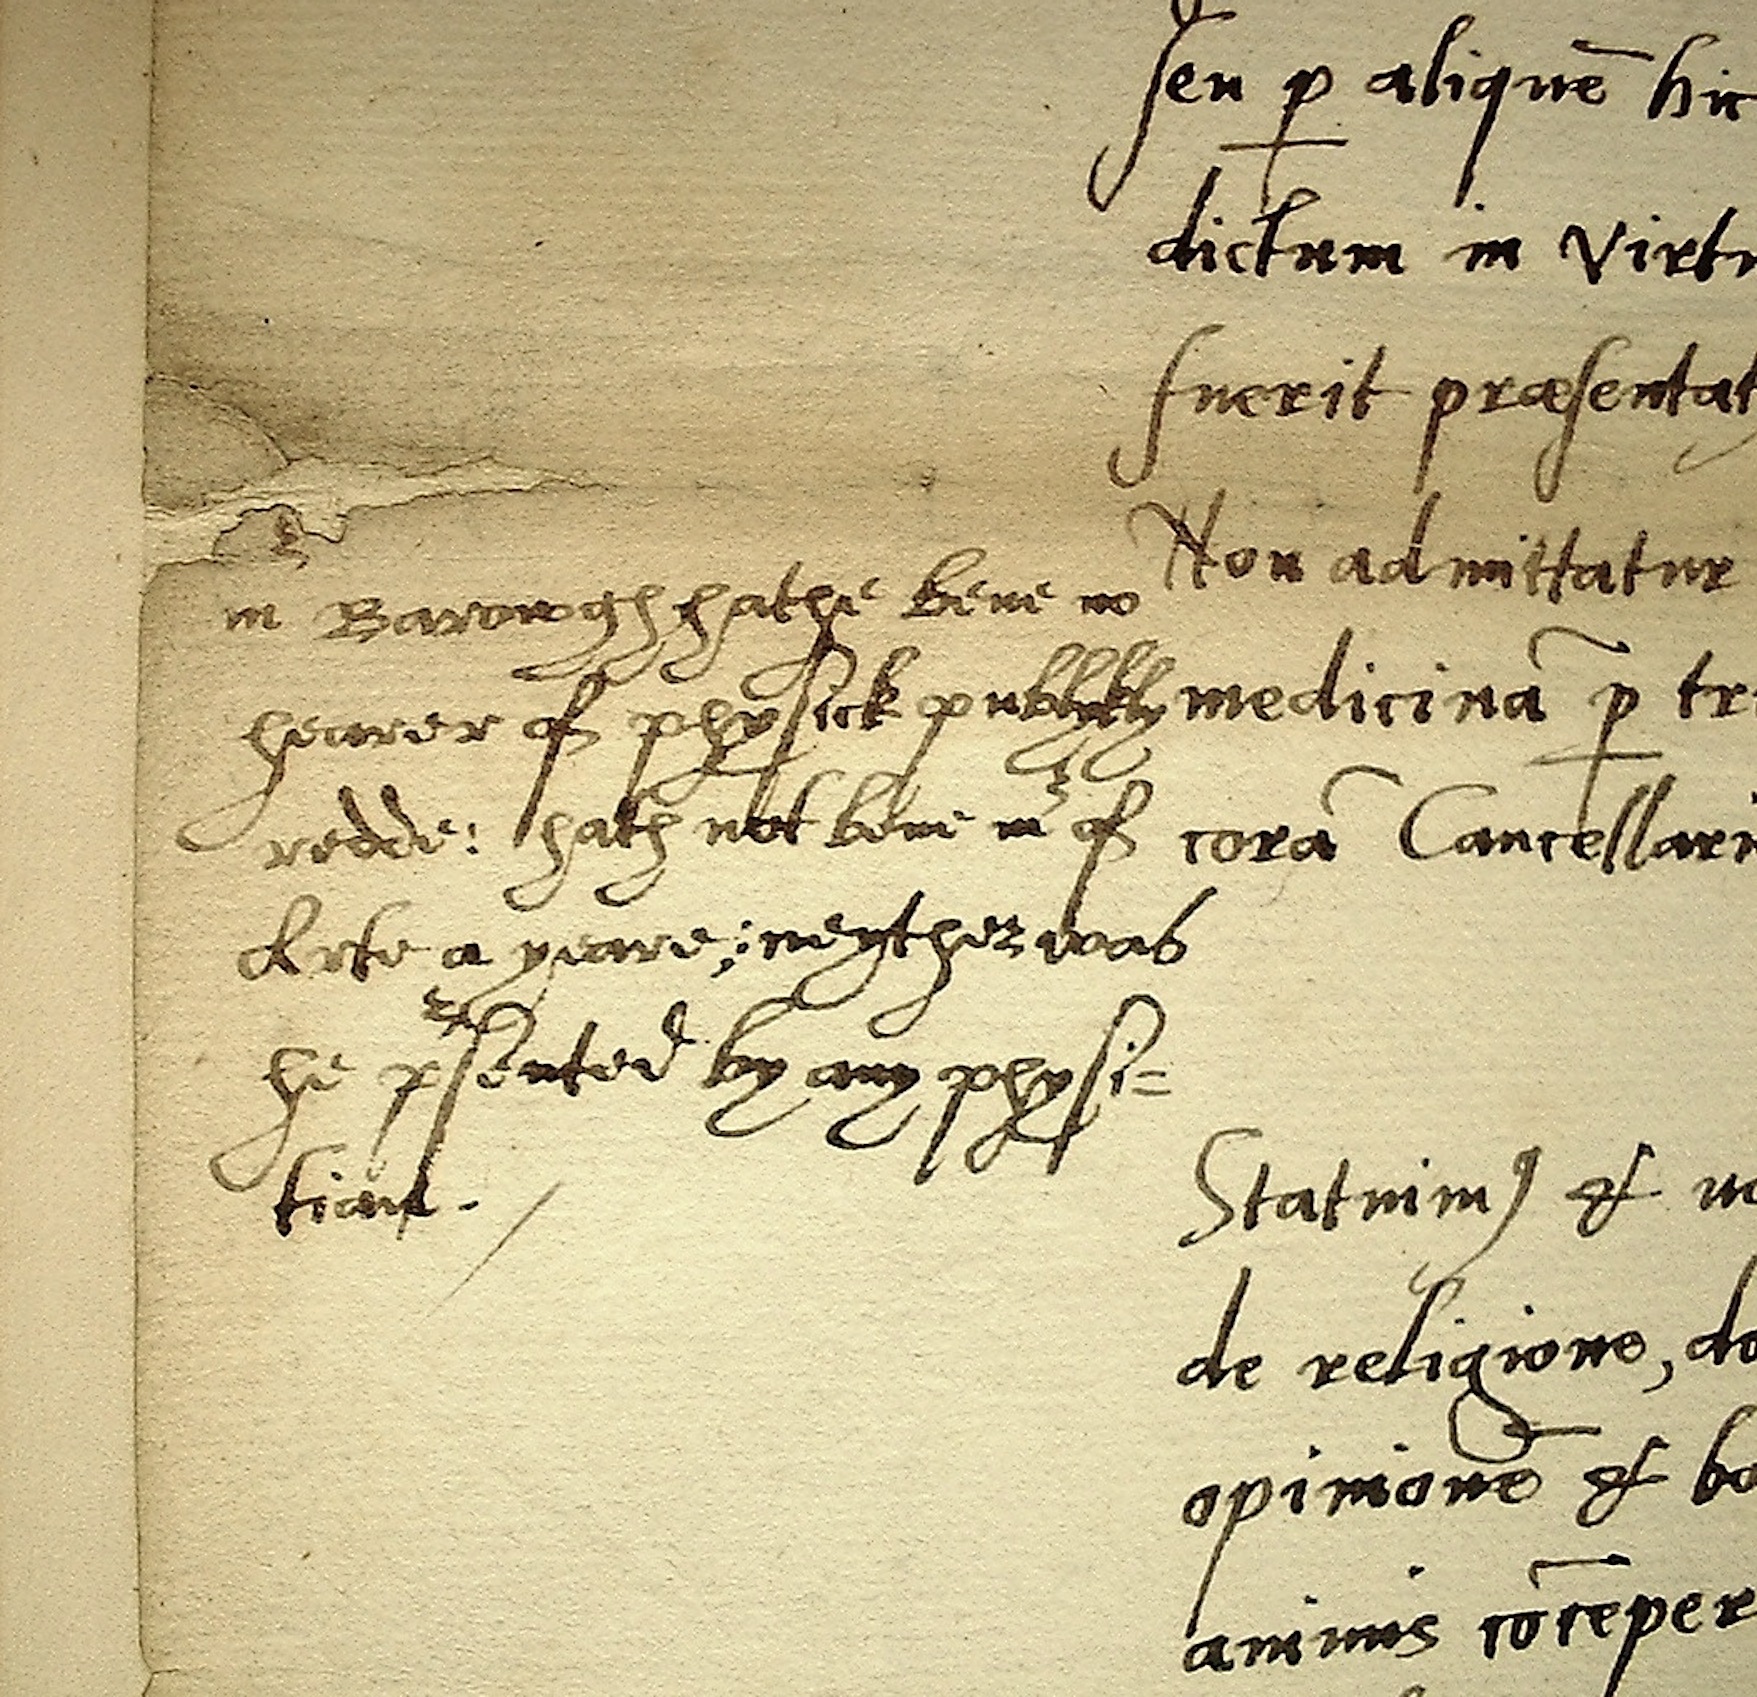 seu p aliquē hic
dictum in virtu
fuerit præsentat
Non admittatur
medicinā p tr
corā Cancellari
m Barowgh hathe bene no
hearer of physick publykly
redde: hath not bene mr of
Arte a yeare; neyther was
he prsented by any physi=
tian.
Statuim9 & vo
de religione, do
opinionē & bo
animis cōceper